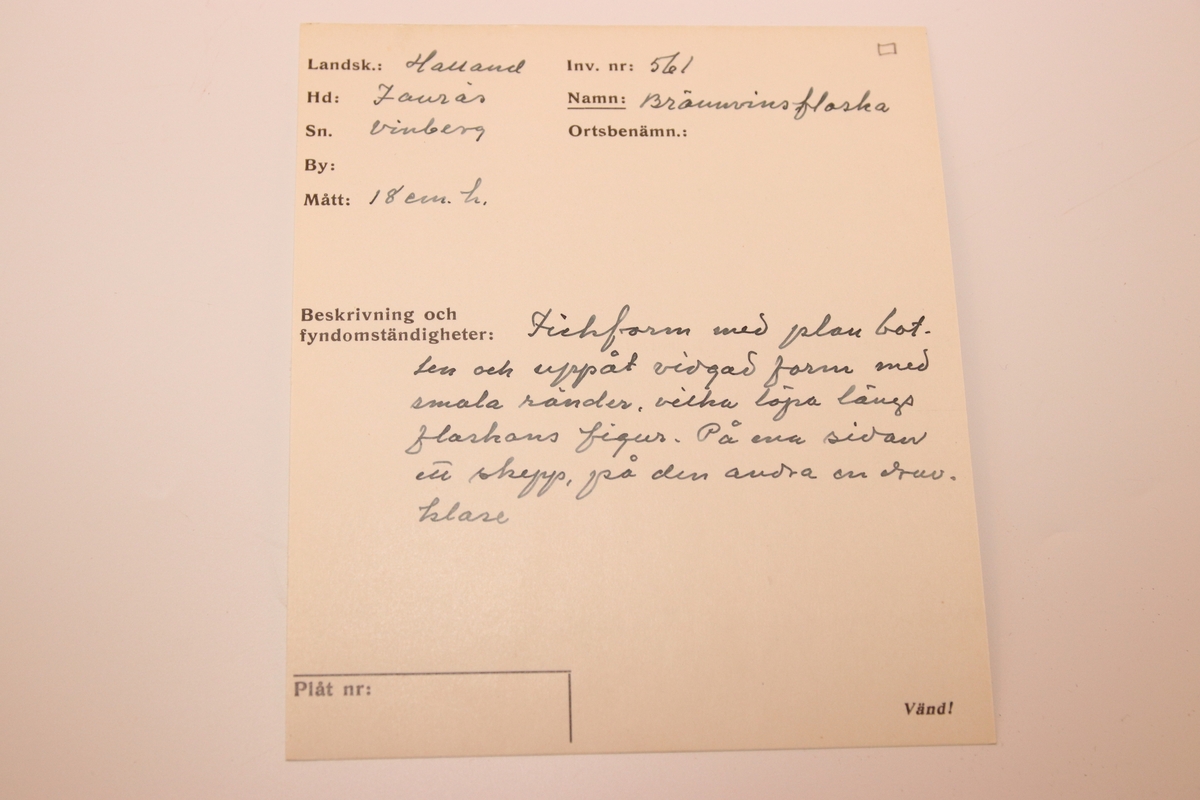 Landsk.: Halland
Inv. nr: 561
Hd: Faurås
Namn: Brännvinsflaska
Sn. Vinberg
Ortsbenämn.:
By:
Mått: 18 cm. h.
Beskrivning och
fyndomständigheter: Fickform med plan bot-
ten och uppåt vidgad form med
smala ränder, vilka löpa längs
flaskans figur. På ena sidan
ett skepp, på den andra en druv-
klase
Plåt nr:
Vänd!